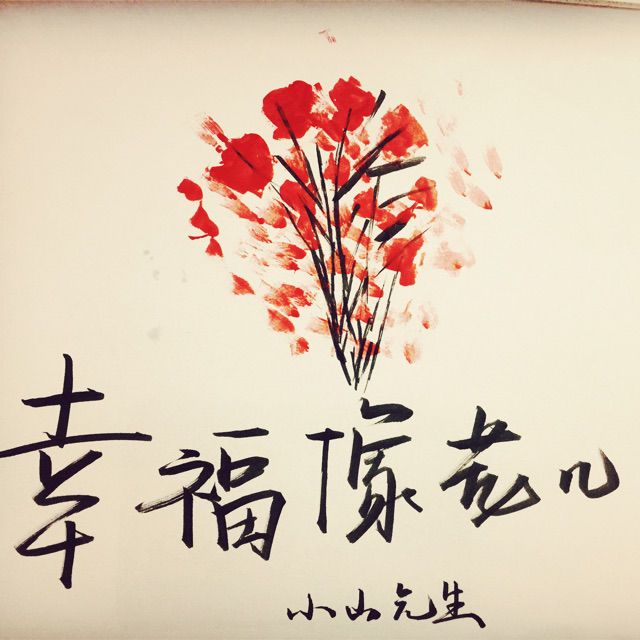 幸福像花儿
小山先生